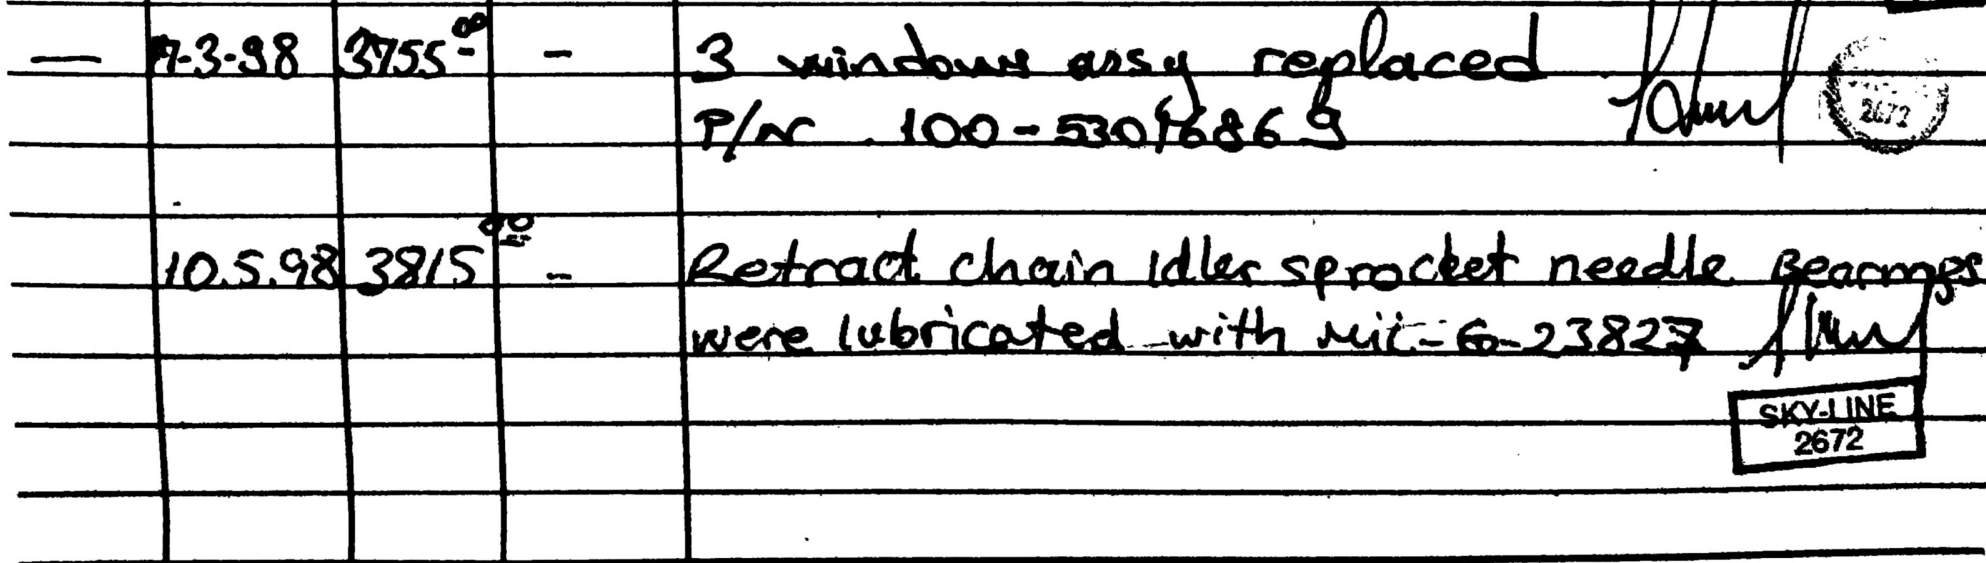 — 17-3-98 3755.00 - 3 windows assy replaced
P/N 100-53016869
2672
10.5.98 3815.00 - Retract chain idler sprocket needle Bearings
were lubricated with Mil-G-23827
SKY-LINE
2672